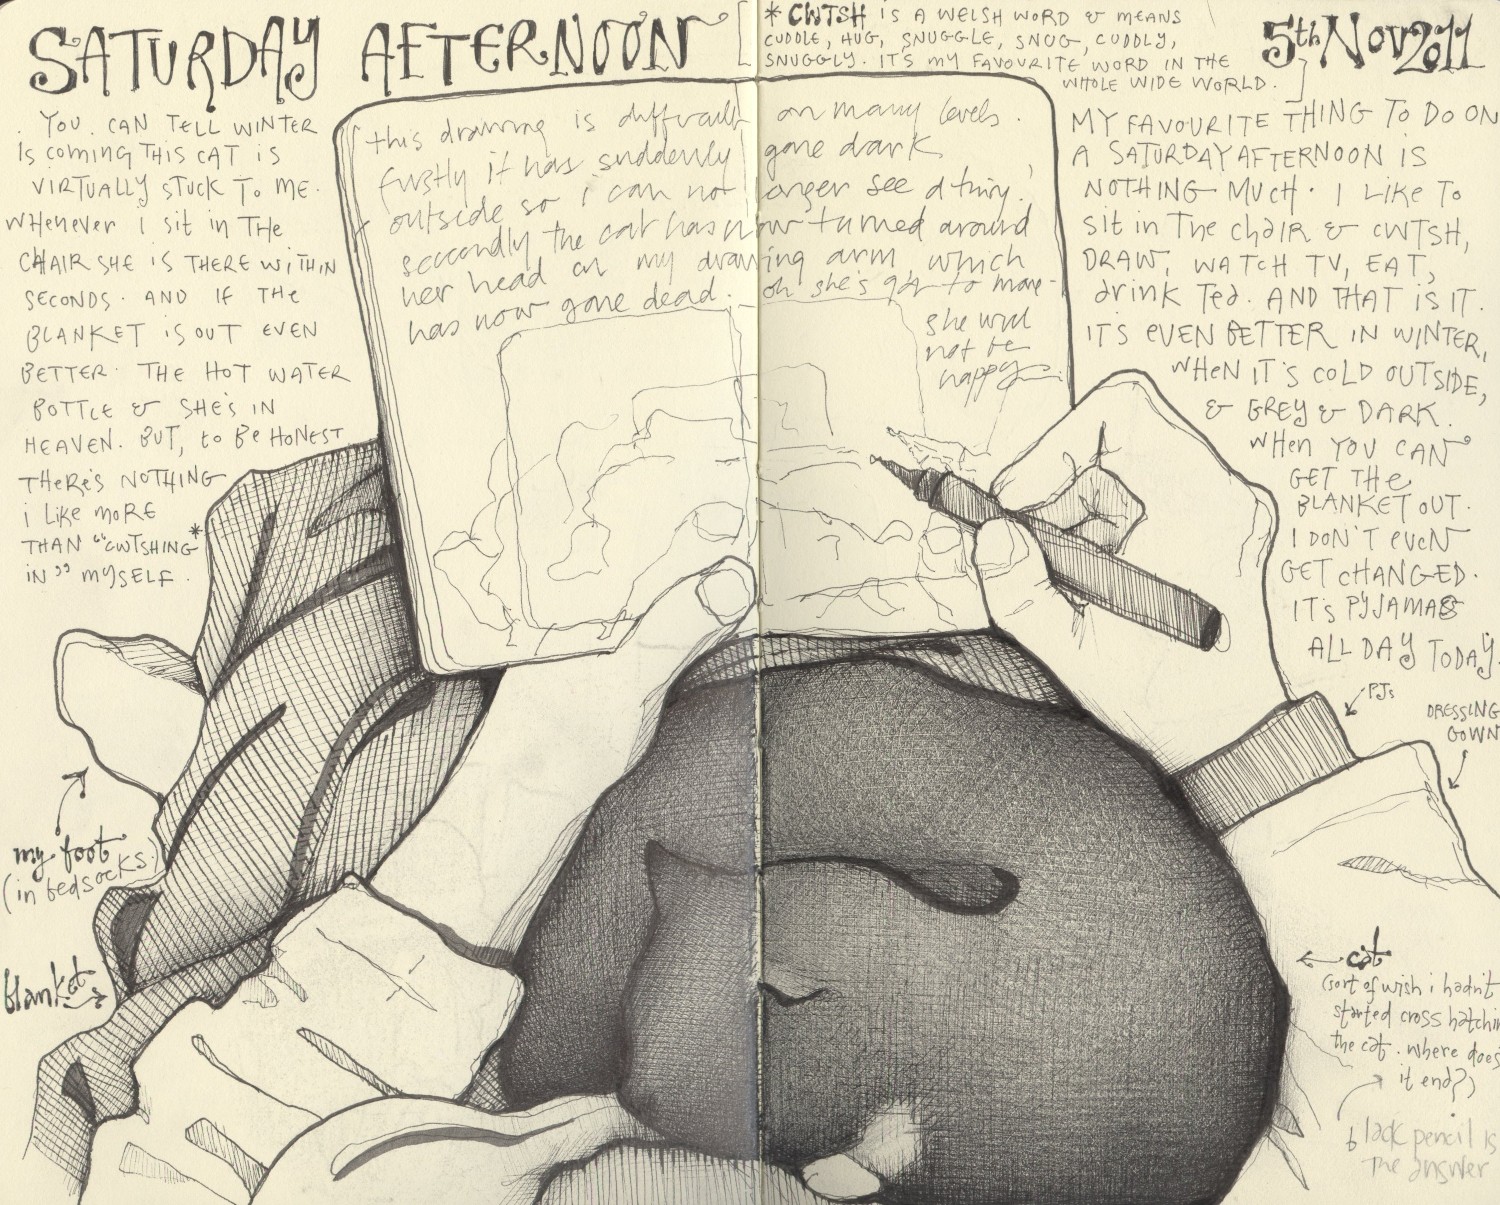 SATURDAY AFTERNOON
[* CWTSH IS A WELSH WORD & MEANS
CUDDLE, HUG, SNUGGLE, SNUG, CUDDLY,
SNUGGLY. IT'S MY FAVOURITE WORD IN THE
WHOLE WIDE WORLD.]
5th Nov 2011
YOU CAN TELL WINTER
IS COMING THIS CAT IS
VIRTUALLY STUCK TO ME.
WHENEVER I SIT IN THE
CHAIR SHE IS THERE WITHIN
SECONDS. AND IF THE
BLANKET IS OUT EVEN
BETTER. THE HOT WATER
BOTTLE & SHE'S IN
HEAVEN. BUT, to Be HONEST
THERE'S NOTHING
i LIKE MORE
THAN "CWTSHING *
IN" MYSELF.
this drawing is difficult on many levels.
firstly it has suddenly gone dark
outside so i can not longer see a thing!
secondly the cat has now turned around
her head on my drawing arm, which
has now gone dead. oh she's got to move -
she will
not be
happy
MY FAVOURITE THING TO DO ON
A SATURDAY AFTERNOON IS
NOTHING MUCH. I LIKE TO
SIT IN THE CHAIR & CWTSH,
DRAW, WATCH TV, EAT,
drink Tea. AND THAT IS IT.
IT'S EVEN BETTER IN WINTER,
WHEN IT'S COLD OUTSIDE,
& GREY & DARK.
WHEN YOU CAN
GET THE
BLANKET OUT.
I DON'T EVEN
GET CHANGED.
IT'S PYJAMAS
ALL DAY TODAY.
PJs
DRESSING
GOWN
my foot
(in bedsocks)
blanket
cat
(sort of wish i hadn't
started cross hatchin
the cat. where does
it end?)
black pencil is
the answer